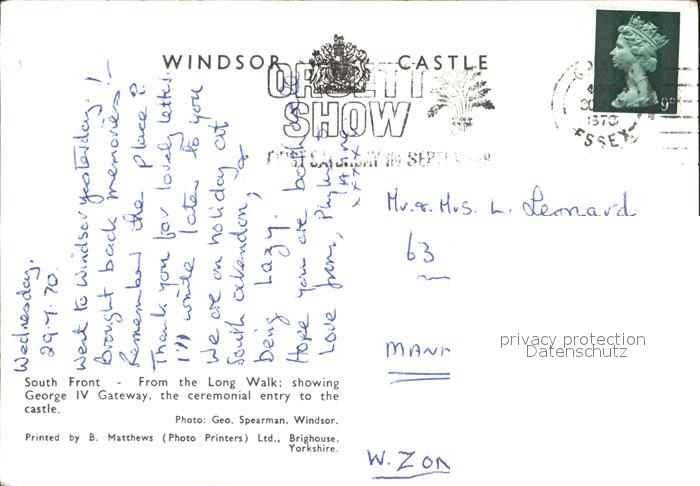 WINDSOR CASTLE
ORSETT
SHOW
FIRST SATURDAY IN SEPTEMBER
1970
ESSEX
9D
Wednesday,
29.7.70.
Went to Windsor yesterday!
Brought back memories!-
Remember the place?
Thank you for lovely letter.
I'll write later to you
We are on holiday at
South Ockendon, &
being Lazy.
Hope you are both well.
Love from, Phyllis
xxxxx
Mr. & Mrs. L. Leonard
63
MANN
W. ZON
privacy protection
Datenschutz
South Front - From the Long Walk; showing
George IV Gateway, the ceremonial entry to the
castle.
Photo: Geo. Spearman, Windsor.
Printed by B. Matthews (Photo Printers) Ltd., Brighouse,
Yorkshire.